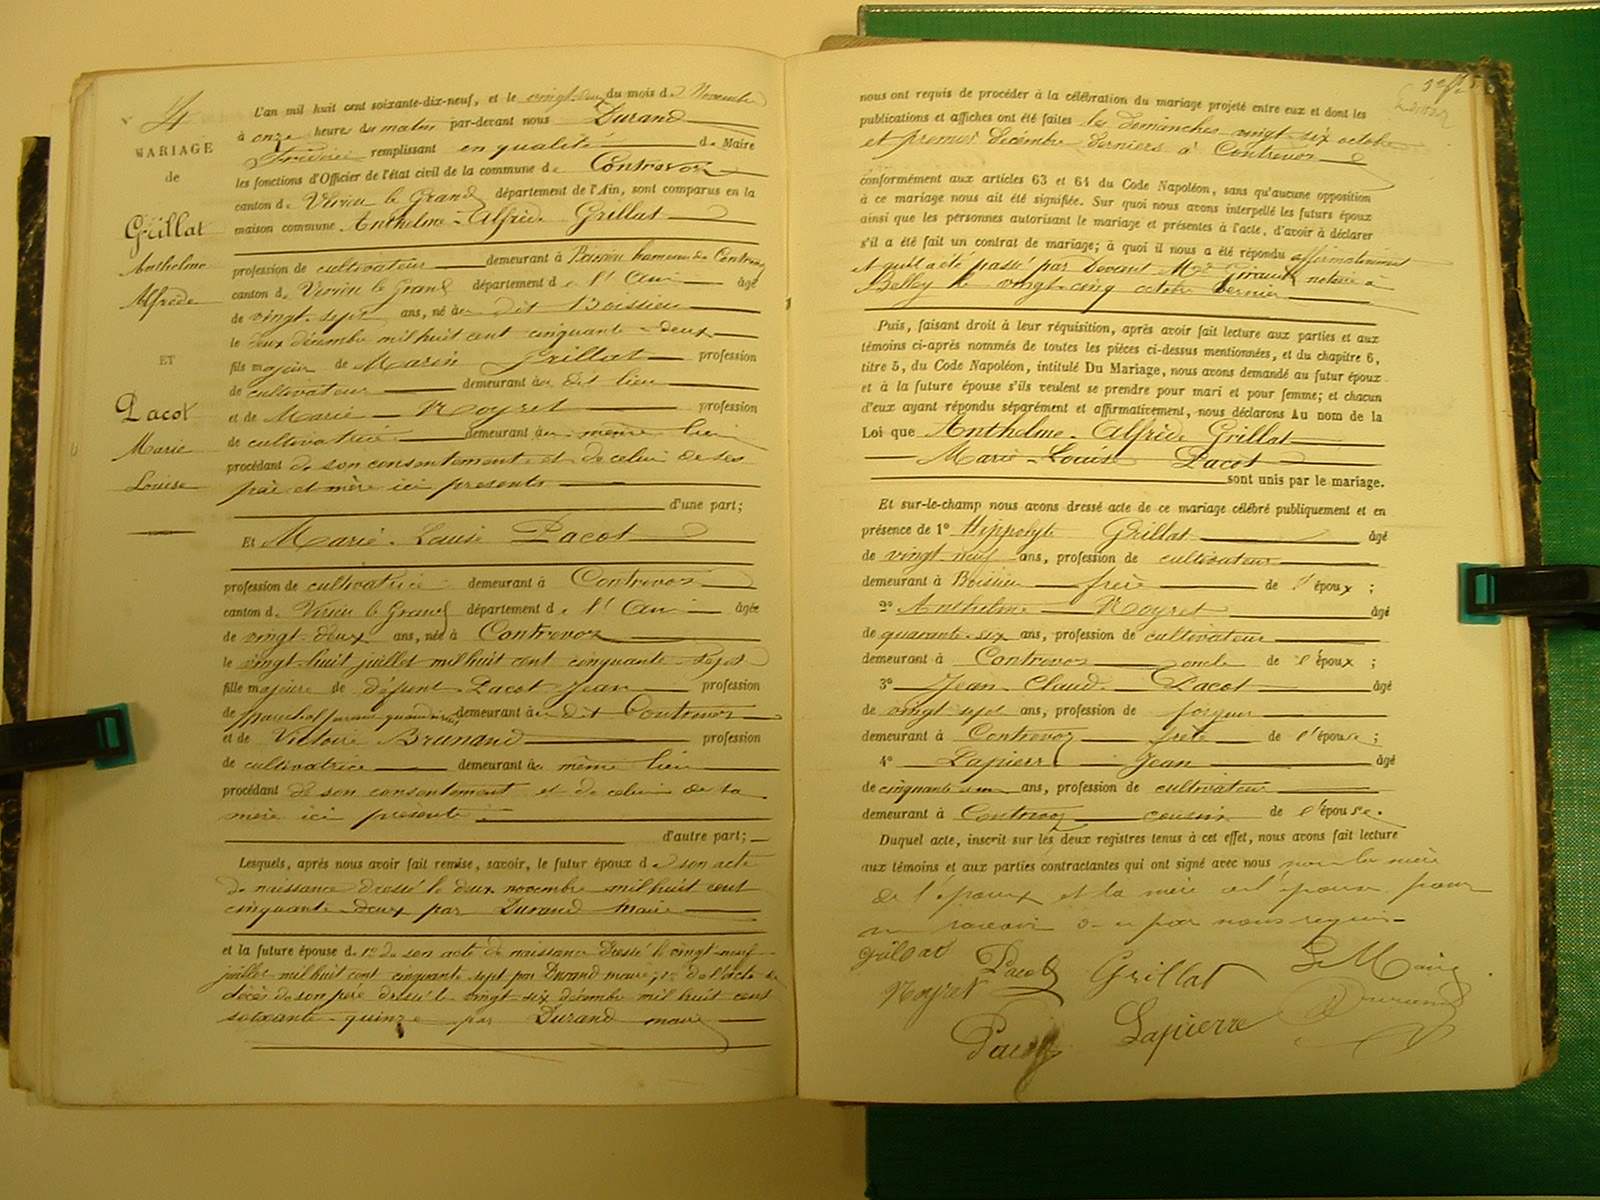 N° 4
MARIAGE
de
Grillat
Anthelme
Alfrède
ET
Pacot
Marie
Louise
L'an mil huit cent soixante-dix-neuf, et le vingt-deux du mois de Novembre
à onze heures du matin par-devant nous Durand
Fréderic remplissant en qualité de Maire
les fonctions d'Officier de l'état civil de la commune de Contrevoz
canton de Virieu le Grand département de l'Ain, sont comparus en la
maison commune Anthelme-Alfrède Grillat
profession de cultivateur demeurant à Boissieu hameau de Contrevoz
canton de Virieu le Grand département de l'Ain âgé
de vingt-sept ans, né au dit Boissieu
le deux décembre mil huit cent cinquante-deux
fils majeur de Marin Grillat profession
de cultivateur demeurant au dit lieu
et de Marie Moyret profession
de cultivatrice demeurant au même lieu
procédant de son consentement et de celui de ses
père et mère ici présents
d'une part;
Et Marie-Louise Pacot
profession de cultivatrice demeurant à Contrevoz
canton de Virieu le Grand département de l'Ain âgée
de vingt-deux ans, née à Contrevoz
le vingt-huit juillet mil huit cent cinquante-sept
fille majeure de défunt Pacot Jean profession
de marechal demeurant au dit Contrevoz
et de Victoire Brunand profession
de cultivatrice demeurant au même lieu
procédant de son consentement et de celui de sa
mère ici présente
d'autre part;
Lesquels, après nous avoir fait remise, savoir, le futur époux de son acte
de naissance dressé le deux novembre mil huit cent
cinquante-deux par Durand maire
et la future épouse d. 1° de son acte de naissance dressé le vingt-neuf
juillet mil huit cent cinquante sept par Durand maire; 2° de l'acte de
décès de son père dressé le vingt-six décembre mil huit cent
soixante-quinze par Durand maire
nous ont requis de procéder à la célébration du mariage projeté entre eux et dont les
publications et affiches ont été faites les dimanches vingt-six octobre
et premier décembre derniers à Contrevoz
conformément aux articles 63 et 64 du Code Napoléon, sans qu'aucune opposition
à ce mariage nous ait été signifiée. Sur quoi nous avons interpellé les futurs époux
ainsi que les personnes autorisant le mariage et présentes à l'acte, d'avoir à déclarer
s'il a été fait un contrat de mariage; à quoi il nous a été répondu affirmativement
et qu'il a été passé par Devant Me Giraud notaire à
Belley le vingt-cinq octobre dernier
Puis, faisant droit à leur réquisition, après avoir fait lecture aux parties et aux
témoins ci-après nommés de toutes les pièces ci-dessus mentionnées, et du chapitre 6,
titre 5, du Code Napoléon, intitulé Du Mariage, nous avons demandé au futur époux
et à la future épouse s'ils veulent se prendre pour mari et pour femme; et chacun
d'eux ayant répondu séparément et affirmativement, nous déclarons Au nom de la
Loi que Anthelme-Alfrède Grillat
Marie-Louise Pacot
sont unis par le mariage.
Et sur-le-champ nous avons dressé acte de ce mariage célébré publiquement et en
présence de 1° Hippolyte Grillat âgé
de vingt neuf ans, profession de cultivateur
demeurant à Boissieu frère de l'époux;
2° Anthelme Moyret âgé
de quarante-six ans, profession de cultivateur
demeurant à Contrevoz oncle de l'époux;
3° Jean Claude Pacot âgé
de vingt sept ans, profession de forgeur
demeurant à Contrevoz frère de l'épouse;
4° Lapierre Jean âgé
de cinquante un ans, profession de cultivateur
demeurant à Contrevoz cousin de l'épouse.
Duquel acte, inscrit sur les deux registres tenus à cet effet, nous avons fait lecture
aux témoins et aux parties contractantes qui ont signé avec nous non la mère
de l'époux et la mère de l'épouse pour
ne savoir de ce par nous requis
Grillat Pacot Grillat Le Maire
Moyret Durand
Pacot Lapierre